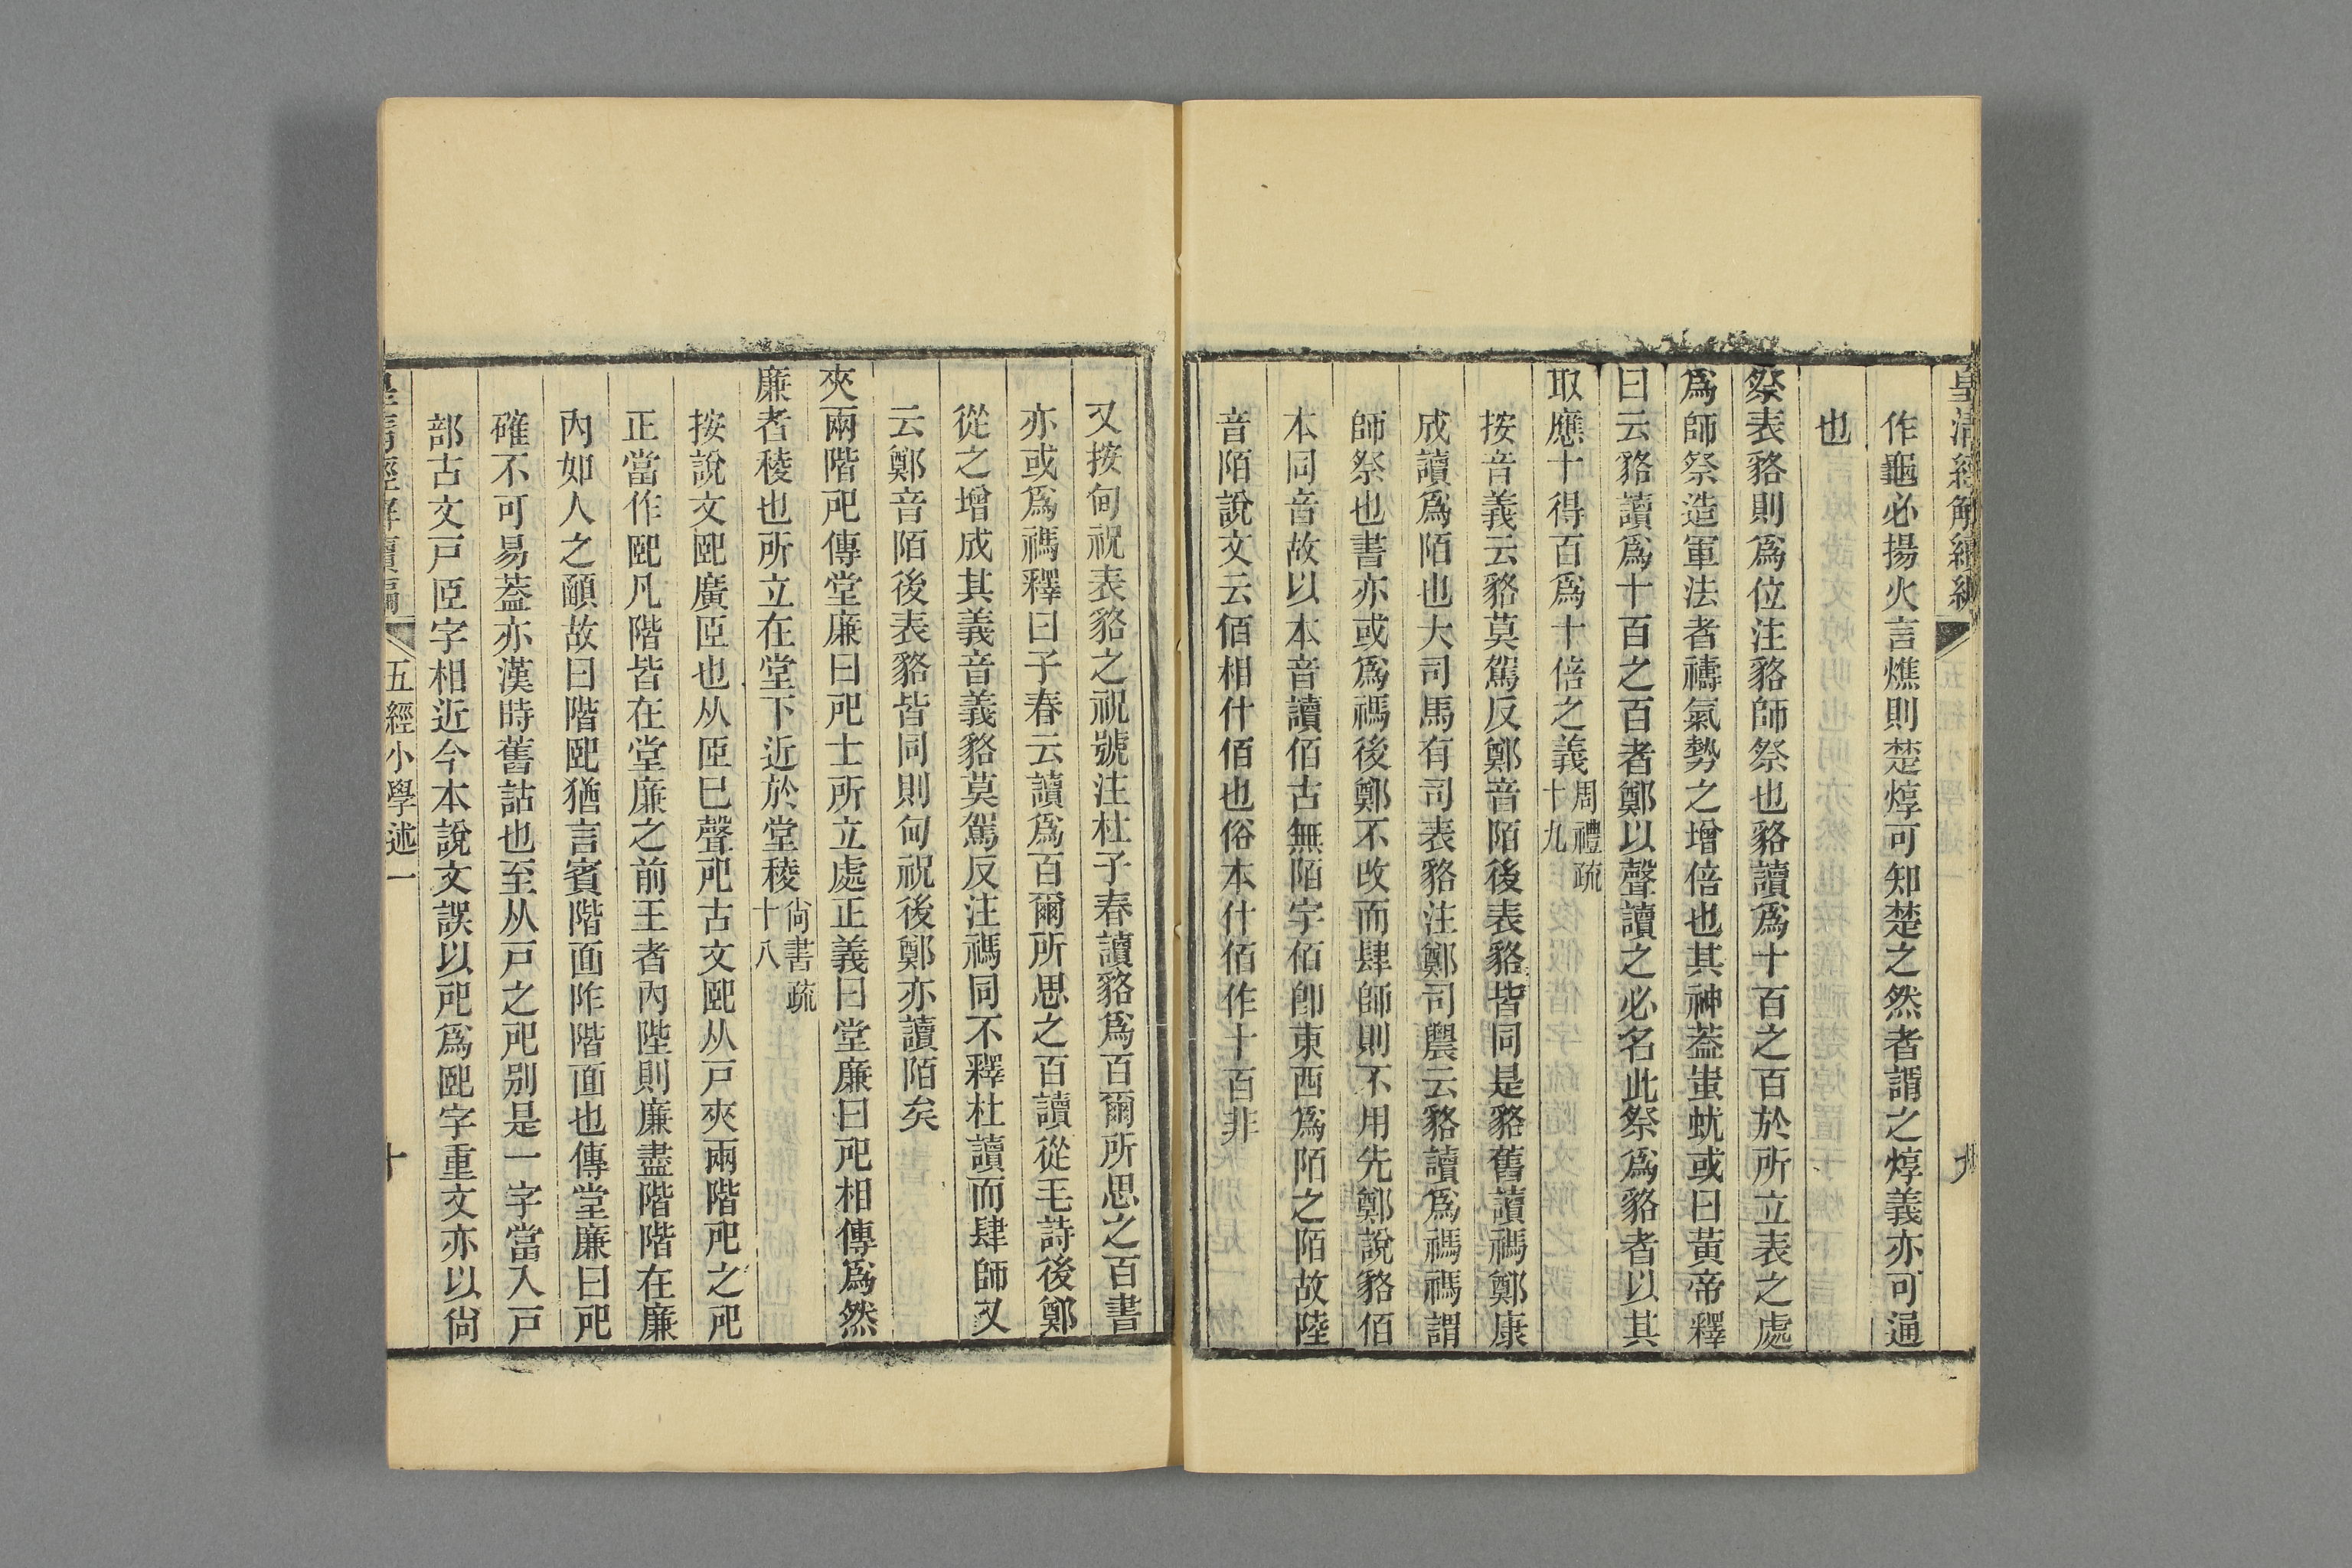 皇清經解續編
九
作龜必揚火言燋則楚焞可知楚之然者謂之焞義亦可通
也
祭表貉則爲位注貉師祭也貉讀爲十百之百於所立表之處
爲師祭造軍法者禱氣勢之增倍也其神葢蚩蚘或曰黃帝釋
曰云貉讀爲十百之百者鄭以聲讀之必名此祭爲貉者以其
取應十得百爲十倍之義周禮疏
十九
按音義云貉莫駕反鄭音陌後表貉皆同是貉舊讀禡鄭康
成讀爲陌也大司馬有司表貉注鄭司農云貉讀爲禡禡謂
師祭也書亦或爲禡後鄭不改而肆師則不用先鄭說貉佰
本同音故以本音讀佰古無陌字佰卽東西爲陌之陌故陸
音陌說文云佰相什佰也俗本什佰作十百非
又按甸祝表貉之祝號注杜子春讀貉爲百爾所思之百書
亦或爲禡釋曰子春云讀爲百爾所思之百讀從毛詩後鄭
從之增成其義音義貉莫駕反注禡同不釋杜讀而肆師又
云鄭音陌後表貉皆同則甸祝後鄭亦讀陌矣
夾兩階戺傳堂廉曰戺士所立處正義曰堂廉曰戺相傳爲然
廉者稜也所立在堂下近於堂稜尙書疏
十八
按說文巸廣𦣞也从𦣞巳聲戺古文巸从戸夾兩階戺之戺
正當作巸凡階皆在堂廉之前王者內陛則廉盡階階在廉
內如人之頤故曰階巸猶言賓階面阼階面也傳堂廉曰戺
確不可易葢亦漢時舊詁也至从戸之戺別是一字當入戸
部古文戸𦣞字相近今本說文誤以戺爲巸字重文亦以尙
皇清經解續編
五經小學述一
十